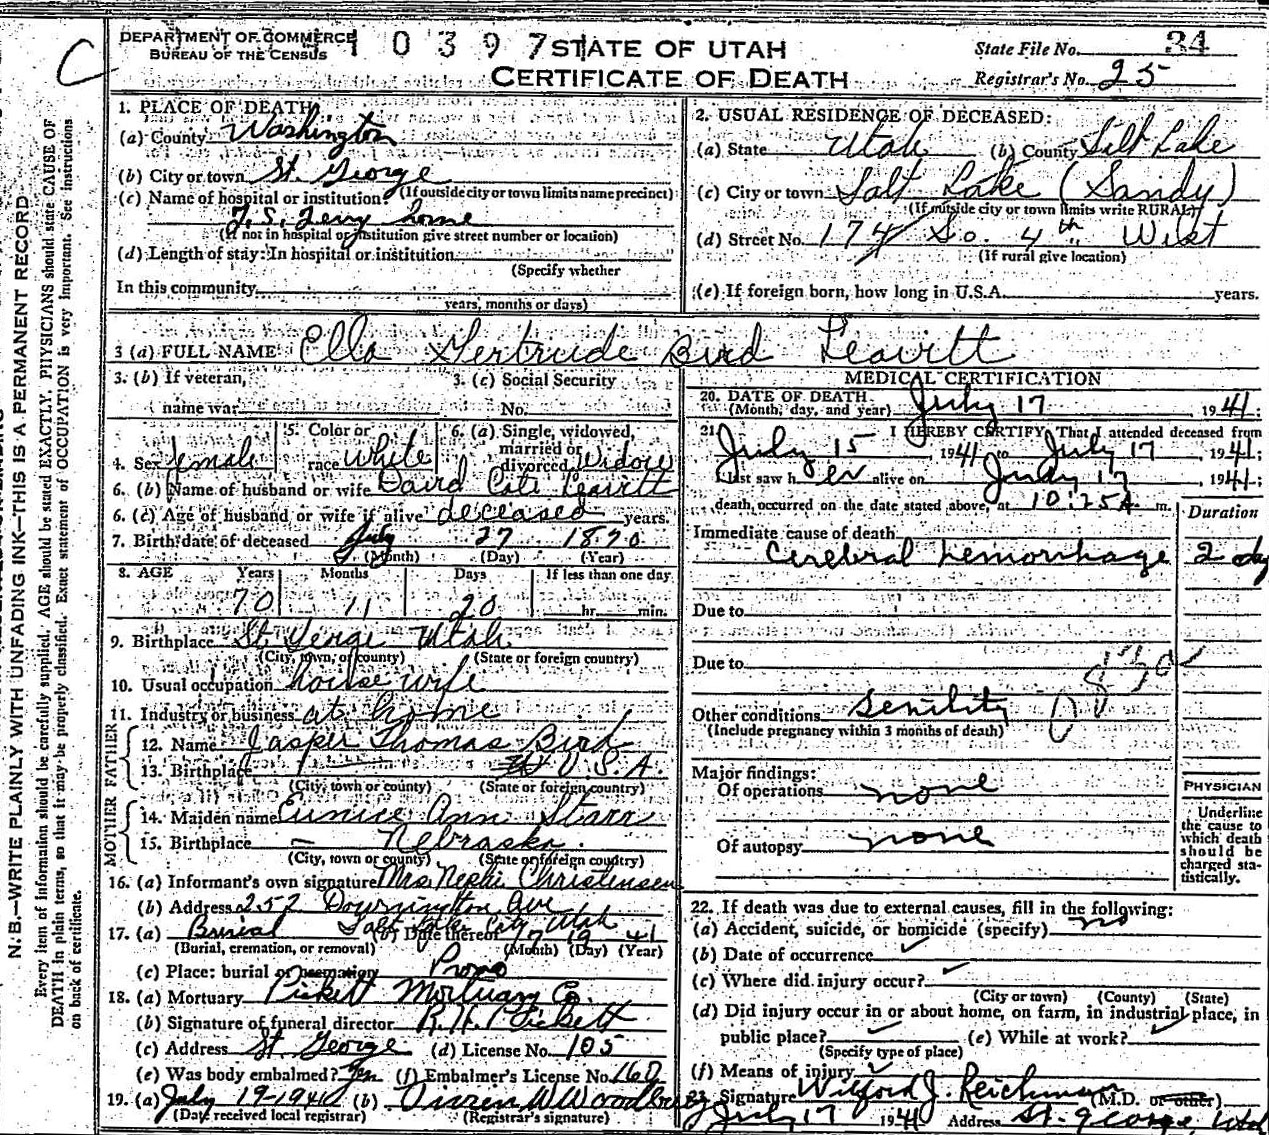 C
DEPARTMENT OF COMMERCE
BUREAU OF THE CENSUS
10397
STATE OF UTAH
CERTIFICATE OF DEATH
State File No. 34
Registrar's No. 25
N.B.—WRITE PLAINLY WITH UNFADING INK—THIS IS A PERMANENT RECORD
Every item of information should be carefully supplied. AGE should be stated EXACTLY. PHYSICIANS should state CAUSE OF
DEATH in plain terms, so that it may be properly classified. Exact statement of OCCUPATION is very important. See instructions
on back of certificate.
1. PLACE OF DEATH
(a) County Washington
(b) City or town St. George
(If outside city or town limits name precinct)
(c) Name of hospital or institution:
J. S. Terry home
(If not in hospital or institution give street number or location)
(d) Length of stay: In hospital or institution
(Specify whether
In this community
years, months or days)
2. USUAL RESIDENCE OF DECEASED:
(a) State Utah (b) County Salt Lake
(c) City or town Salt Lake (Sandy)
(If outside city or town limits write RURAL)
(d) Street No. 174 So. 4th West
(If rural give location)
(e) If foreign born, how long in U.S.A. years.
3 (a) FULL NAME Ella Gertrude Bird Leavitt
3. (b) If veteran,
name war
3. (c) Social Security
No.
4. Sex female
5. Color or
race White
6. (a) Single, widowed,
married or
divorced Widow
6. (b) Name of husband or wife David Cate Leavitt
6. (c) Age of husband or wife if alive deceased years.
7. Birth date of deceased July 27 1870
(Month) (Day) (Year)
8. AGE Years Months Days If less than one day
70 11 20 hr. min.
9. Birthplace St George Utah
(City, town, or county) (State or foreign country)
10. Usual occupation house wife
11. Industry or business at home
FATHER
12. Name Jasper Thomas Bird
13. Birthplace U.S.A.
(City, town or county) (State or foreign country)
MOTHER
14. Maiden name Eunice Ann Starr
15. Birthplace — Nebraska
(City, town or county) (State or foreign country)
16. (a) Informant's own signature Mrs. Nephi Christensen
(b) Address 252 Downington Ave
Salt Lake City Utah
17. (a) Burial (b) Date thereof 7 19 41
(Burial, cremation, or removal) (Month) (Day) (Year)
(c) Place: burial or cremation Provo
18. (a) Mortuary Pickett Mortuary Co.
(b) Signature of funeral director R. H. Pickett
(c) Address St. George (d) License No. 105
(e) Was body embalmed? Yes (f) Embalmer's License No. 160
19. (a) July 19-1941 (b) Woodbury
(Date received local registrar) (Registrar's signature)
MEDICAL CERTIFICATION
20. DATE OF DEATH
(Month, day, and year) July 17, 1941;
21. I HEREBY CERTIFY, That I attended deceased from
July 15, 1941 to July 17, 1941;
I last saw her alive on July 17, 1941;
death occurred on the date stated above, at 10:25 A. m.
Duration
Immediate cause of death
Cerebral hemorrhage 2 day
Due to
Due to
Other conditions Senility
(Include pregnancy within 3 months of death)
Major findings:
Of operations none
Of autopsy none
PHYSICIAN
Underline
the cause to
which death
should be
charged sta-
tistically.
22. If death was due to external causes, fill in the following:
(a) Accident, suicide, or homicide (specify) no
(b) Date of occurrence ✓
(c) Where did injury occur? ✓
(City or town) (County) (State)
(d) Did injury occur in or about home, on farm, in industrial place, in
public place? ✓ (e) While at work? ✓
(Specify type of place)
(f) Means of injury ✓
23. Signature Wilford J. Reichman (M.D. or other)
July 17 1941 Address St. George, Utah